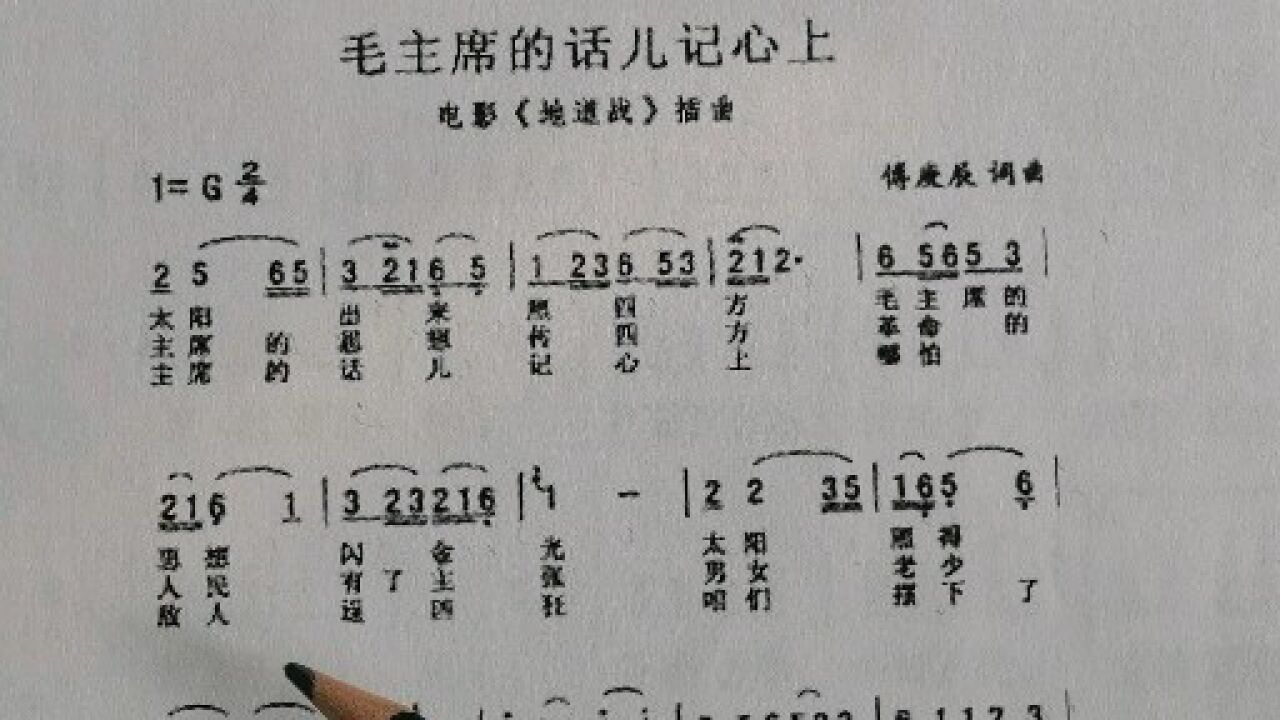 毛主席的话儿记心上
电影《地道战》插曲
1= G 2/4
傅庚辰 词曲
2 5 65 | 3 21 6 5 | 1 23 6 53 | 21 2· | 6 56 5 3 |
太 阳 出 来 照 四 方 毛 主 席 的
主 席 的 思 想 传 四 方 革 命 的
主 席 的 话 儿 记 心 上 哪 怕
21 6 1 | 3 23 216 | 1 － | 2 2 35 | 16 5 6 |
思 想 闪 金 光 太 阳 照 得
人 民 有 了 主 张 男 女 老 少
敌 人 逞 凶 狂 咱 们 摆 下 了